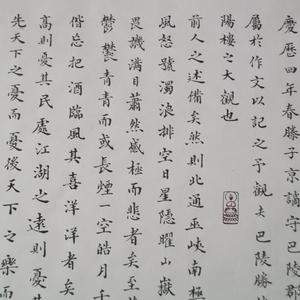 慶曆四年春滕子京謫守巴陵郡
屬於作文以記之予觀夫巴陵勝
陽樓之大觀也
前人之述備矣然則北通巫峽南極
風怒號濁浪排空日星隱曜山嶽
畏譏滿目蕭然感極而悲者矣至
鬱鬱青青而或長煙一空皓月千
偕忘把酒臨風其喜洋洋者矣
高則憂其民處江湖之遠則憂其
先天下之憂而憂後天下之樂而